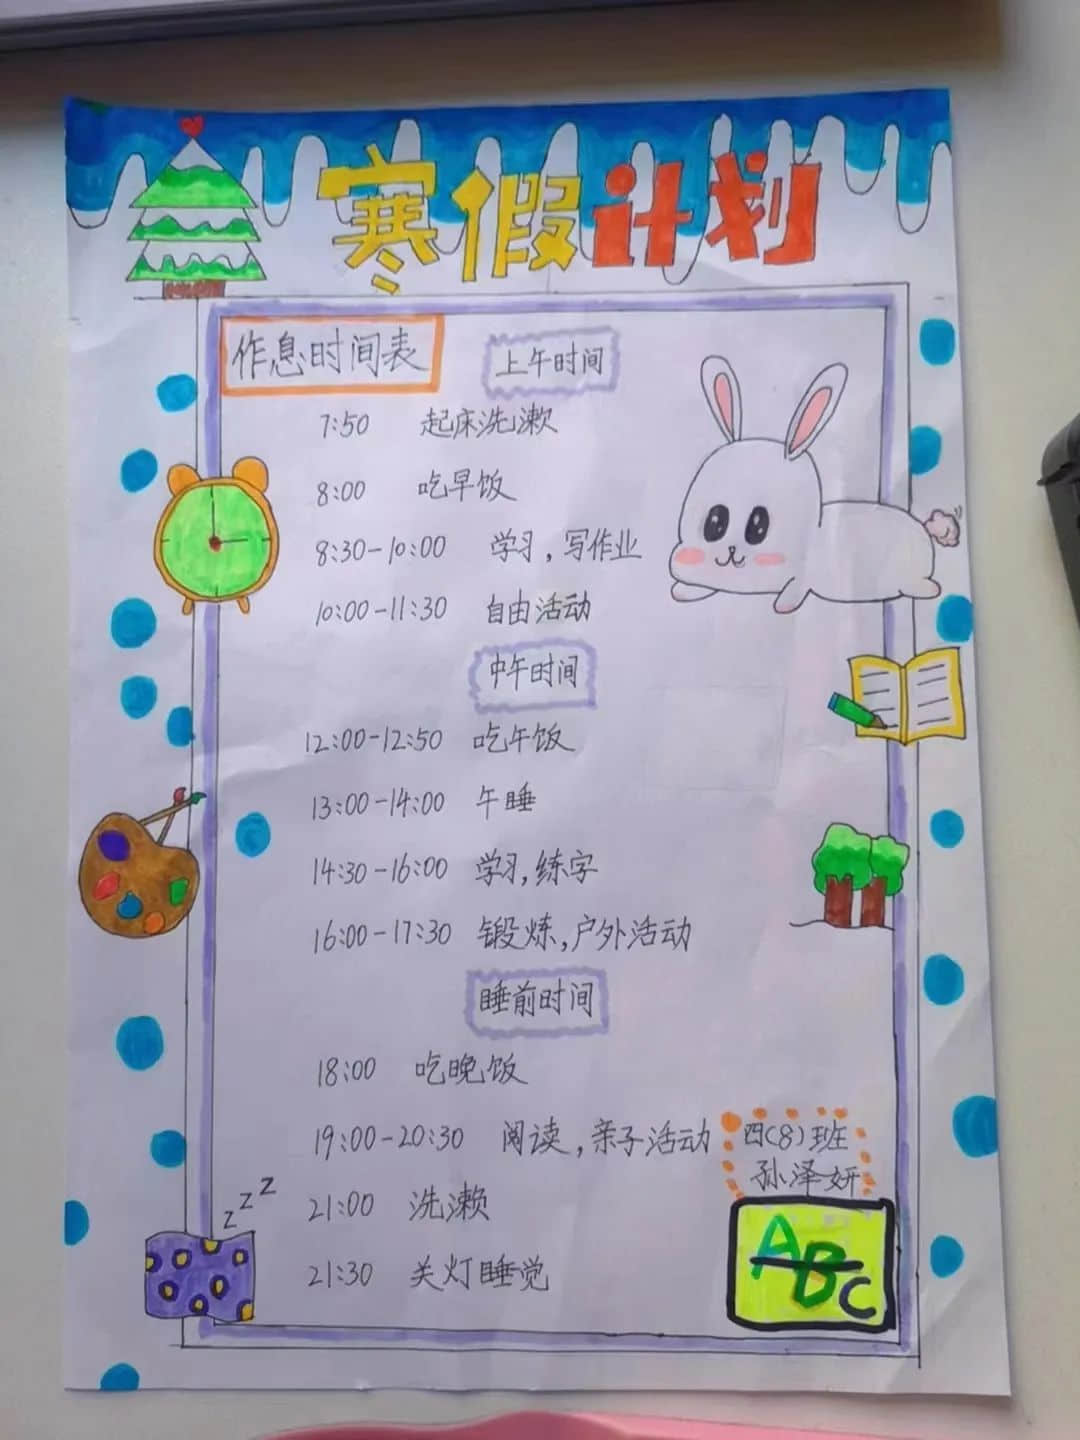 寒假计划
作息时间表
上午时间
7:50 起床洗漱
8:00 吃早饭
8:30-10:00 学习,写作业
10:00-11:30 自由活动
中午时间
12:00-12:50 吃午饭
13:00-14:00 午睡
14:30-16:00 学习,练字
16:00-17:30 锻炼,户外活动
睡前时间
18:00 吃晚饭
19:00-20:30 阅读,亲子活动
四(8)班
孙泽妍
21:00 洗漱
21:30 关灯睡觉
zzz
ABC